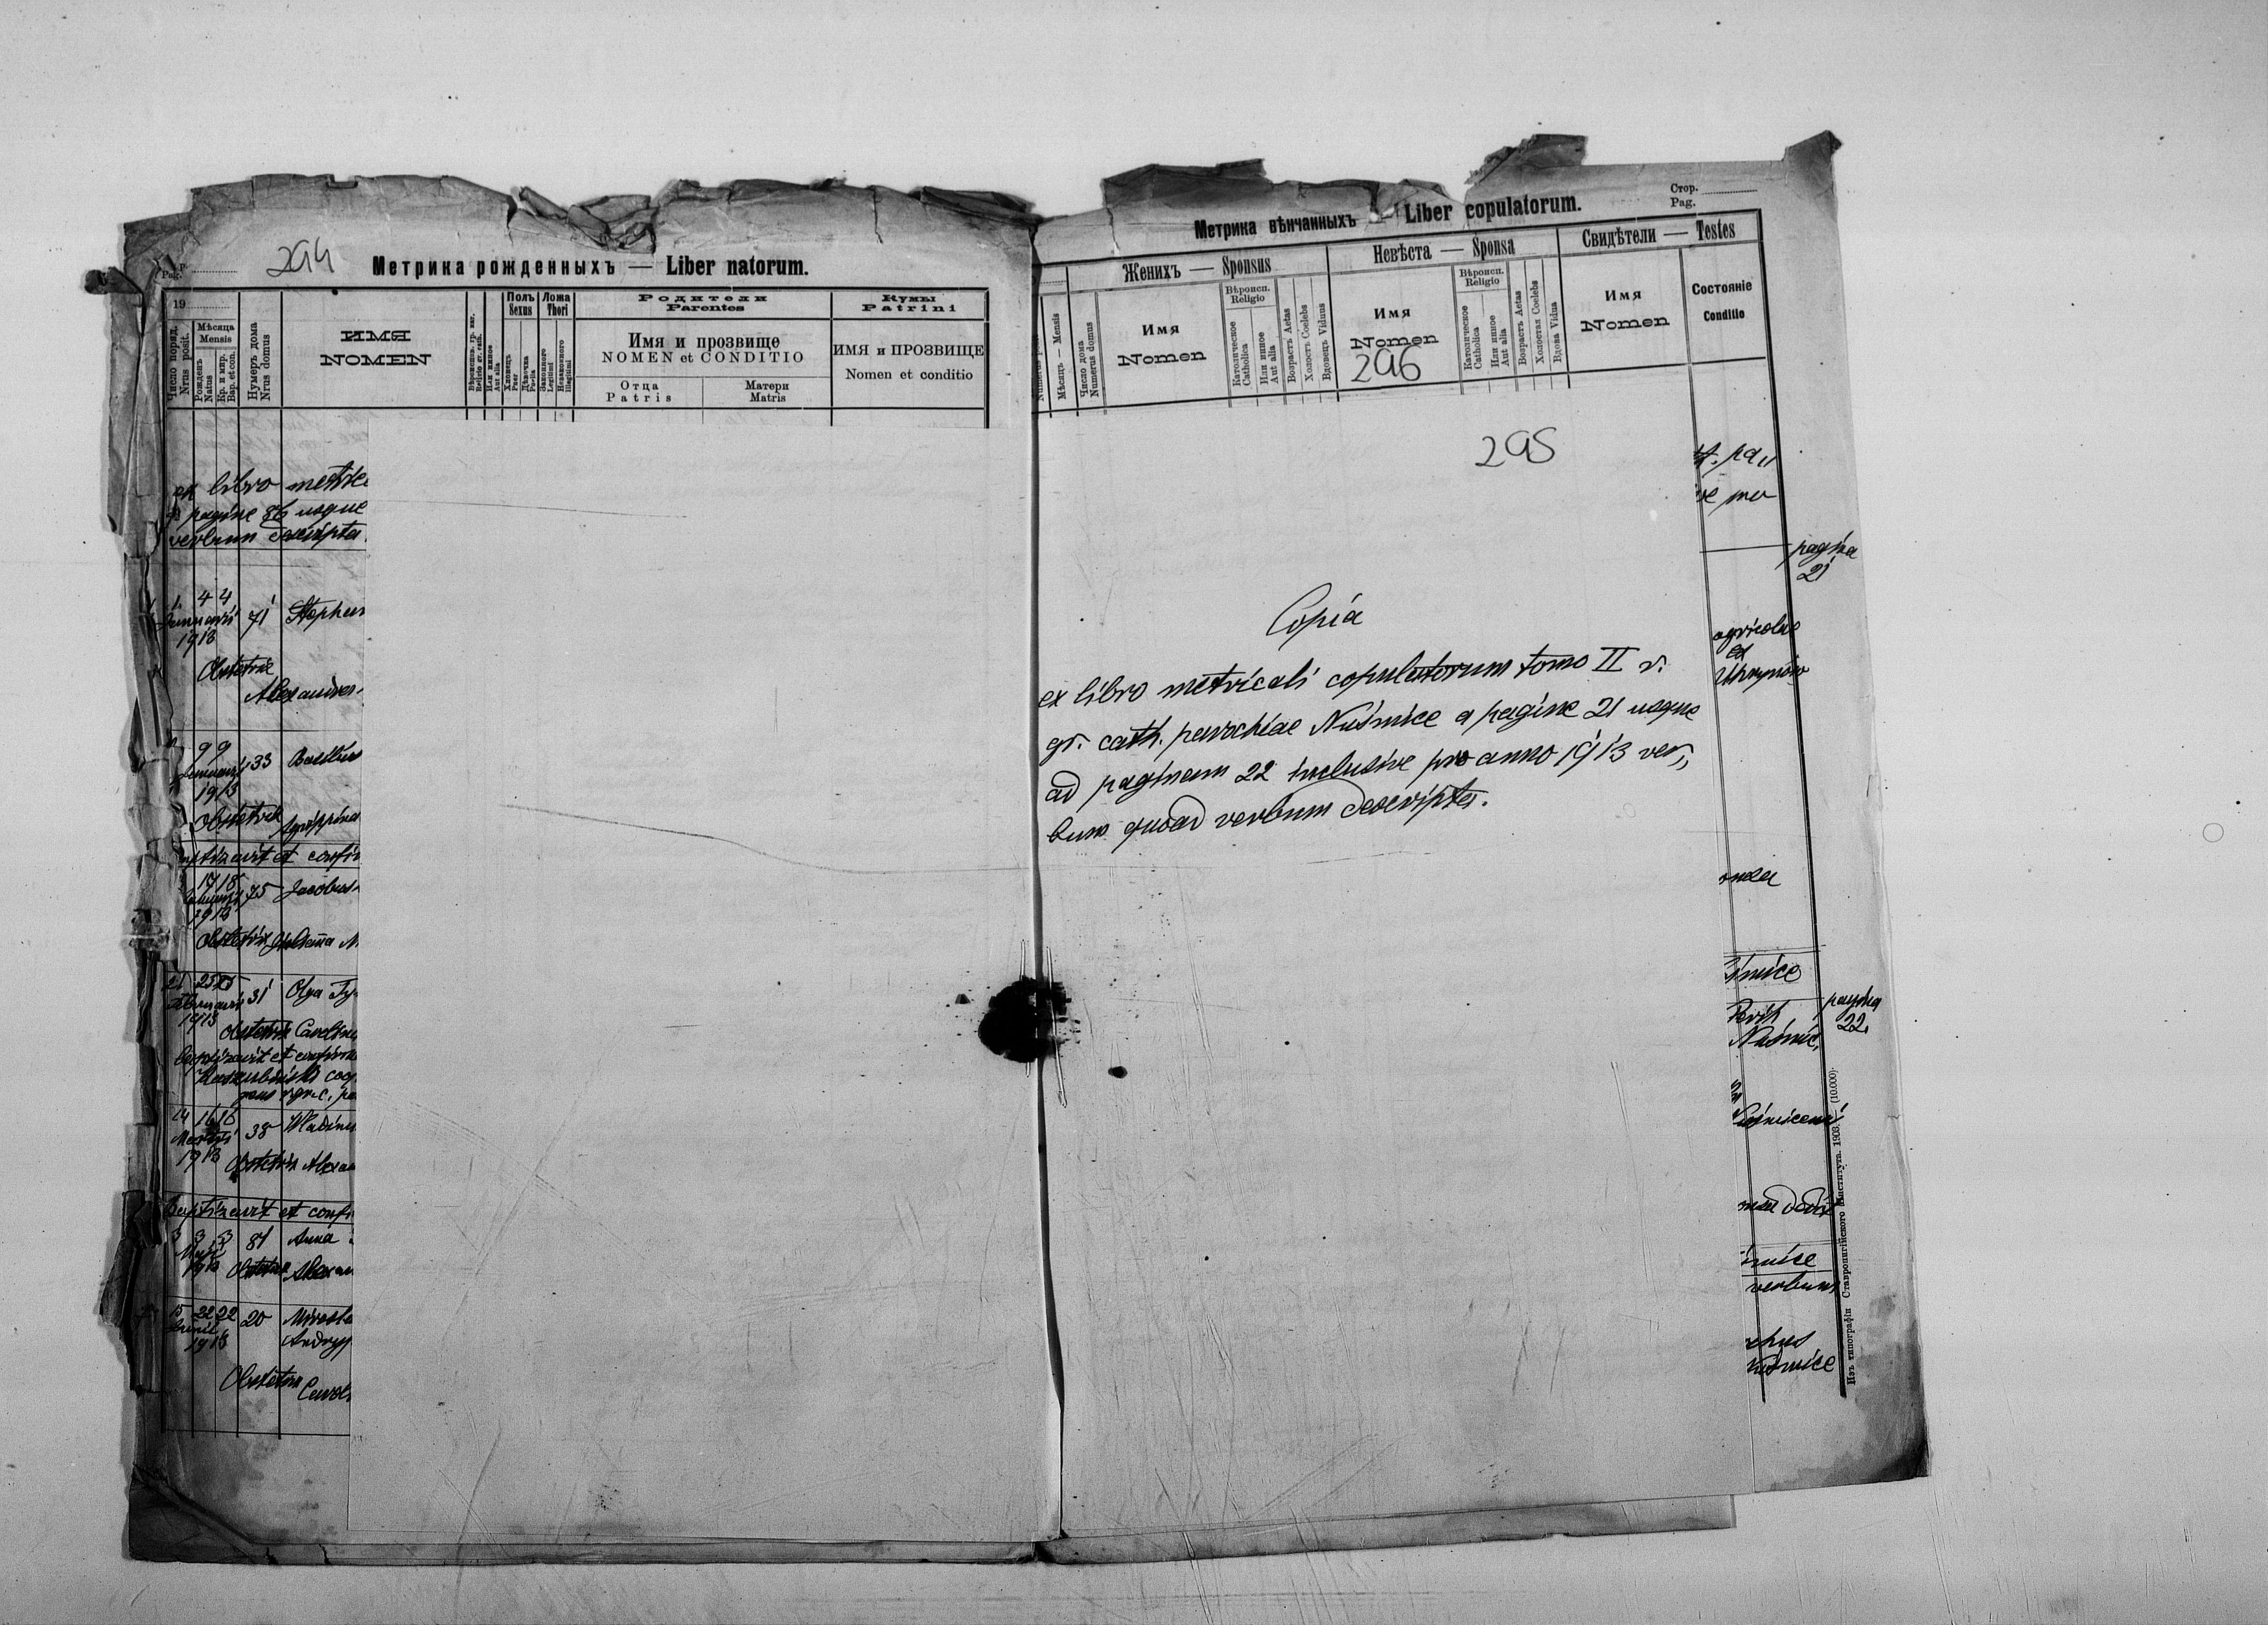 Pag.
294
Метрика рожденныхъ — Liber natorum.
19
Число поряд.
Nrus posit.
Мѣсяца
Mensis
Рожденъ
Natus
Кр. и мир.
Bap. et con.
Нумеръ дома
Nrus domus
ИМЯ
NOMEN
Или инное
Aut alia
Полъ
Sexus
Хлопець
Puer
Дѣвочка
Puella
Ложа
Thori
Законного
Legitimi
Незаконного
Illegitimi
Родители
Parentes
Имя и прозвище
NOMEN et CONDITIO
Отца
Patris
Матери
Matris
Кумы
Patrini
ИМЯ и ПРОЗВИЩЕ
Nomen et conditio
ex libro metric
pagine 86 usque
verbum descripta
1. 4 4
Januarii 71 Stephan
1913
Obstetrix
Alexandra
9 9
Januarii 33 Basilius
1913
Obstetrix Agrippina
baptizavit et confir
17 18
75 Jacobus
1913
Obstetrix
21 25 25
Februarii 31 Olga Ty
1913
Obstetrix Carolina
baptizavit et confirma
14 16 16
Martii 38 Wladimi
1913
Obstetrix Alexan
Baptizavit et confi
3 3 3 81 Anna
Maji
1913 Obstetrix Alexan
15 22 22 20 Mirosla
Junii
1913 Andryj
Obstetrix
Carol
Стор.
Pag.
Метрика вѣнчанныхъ — Liber copulatorum.
Мѣсяць — Mensis
Число дома
Numerus domus
Женихъ — Sponsus
Имя
Nomen
Вѣроисп.
Religio
Католическое
Catholica
Или инное
Aut alia
Возрастъ Aetas
Холостъ Coelebs
Вдовець Viduus
Невѣста — Sponsa
Имя
Nomen
296
Вѣроисп.
Religio
Католическое
Catholica
Или инное
Aut alia
Возрастъ Aetas
Холостая Coelebs
Вдова Vidua
Свидѣтели — Testes
Имя
Nomen
Состояніе
Conditio
295
Copia
ex libro metricali copulatorum tomo II r.
gr. cath. parochiae Nuśmice a pagina 21 usque
ad paginam 22 inclusive pro anno 1913 ver„
bum quoad verbum descripta.
pagina
21
agricolae
et
Uhrynów
śmice
pagina
22.
Nuśmic
mea dedit
śmice
verbum
Nuśmice
Изъ типографіи Ставропигійского Института. 1903. (10.000).